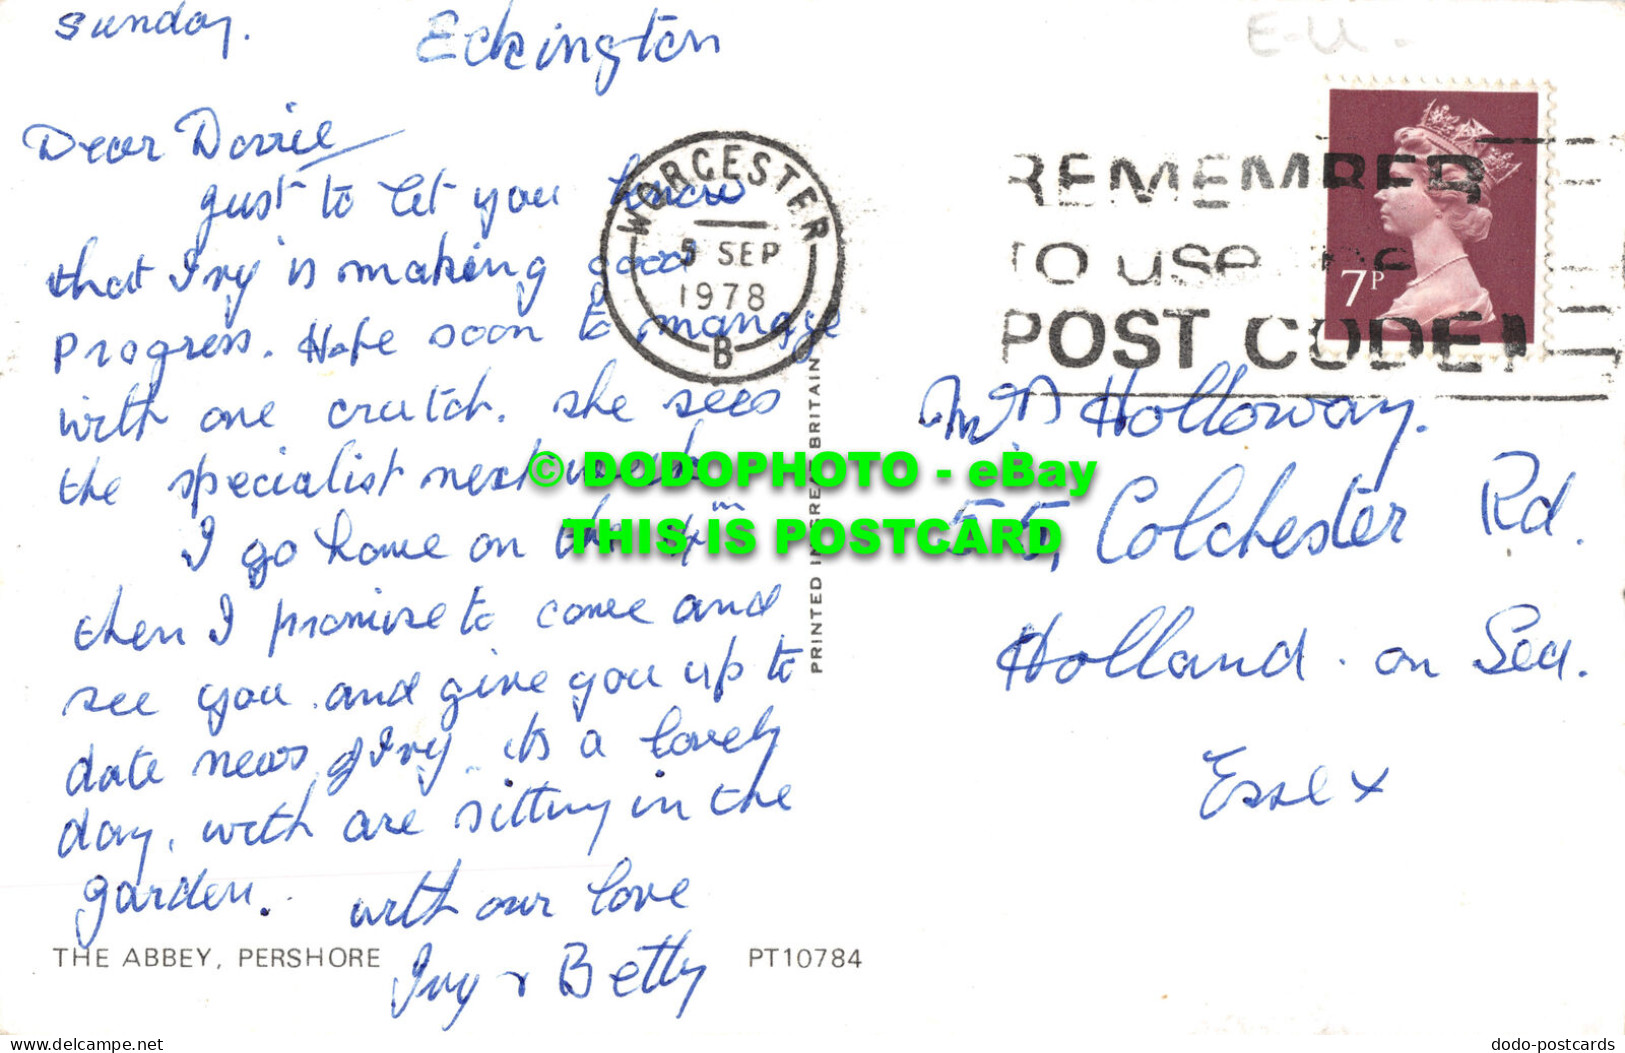 sunday. Eckington
Dear Dorrie
just to let you know
that Ivy is making good
Progress. Hope soon to manage
with one crutch. she sees
the specialist next week
I go home on the
then I promise to come and
see you. and give you up to
date news of Ivy. its a lovely
day. with are sitting in the
garden. with our love
Ivy & Betty
THE ABBEY, PERSHORE PT10784
PRINTED IN GREAT BRITAIN
E-U.
WORCESTER
5 SEP
1978
B
REMEMBER
TO USE THE
POST CODE!
7P
Mrs Holloway.
55, Colchester Rd.
Holland. on Sea.
Essex
© DODOPHOTO - eBay
THIS IS POSTCARD
https://www.ebay.co.uk/str/dodopostcards
dodo-postcards